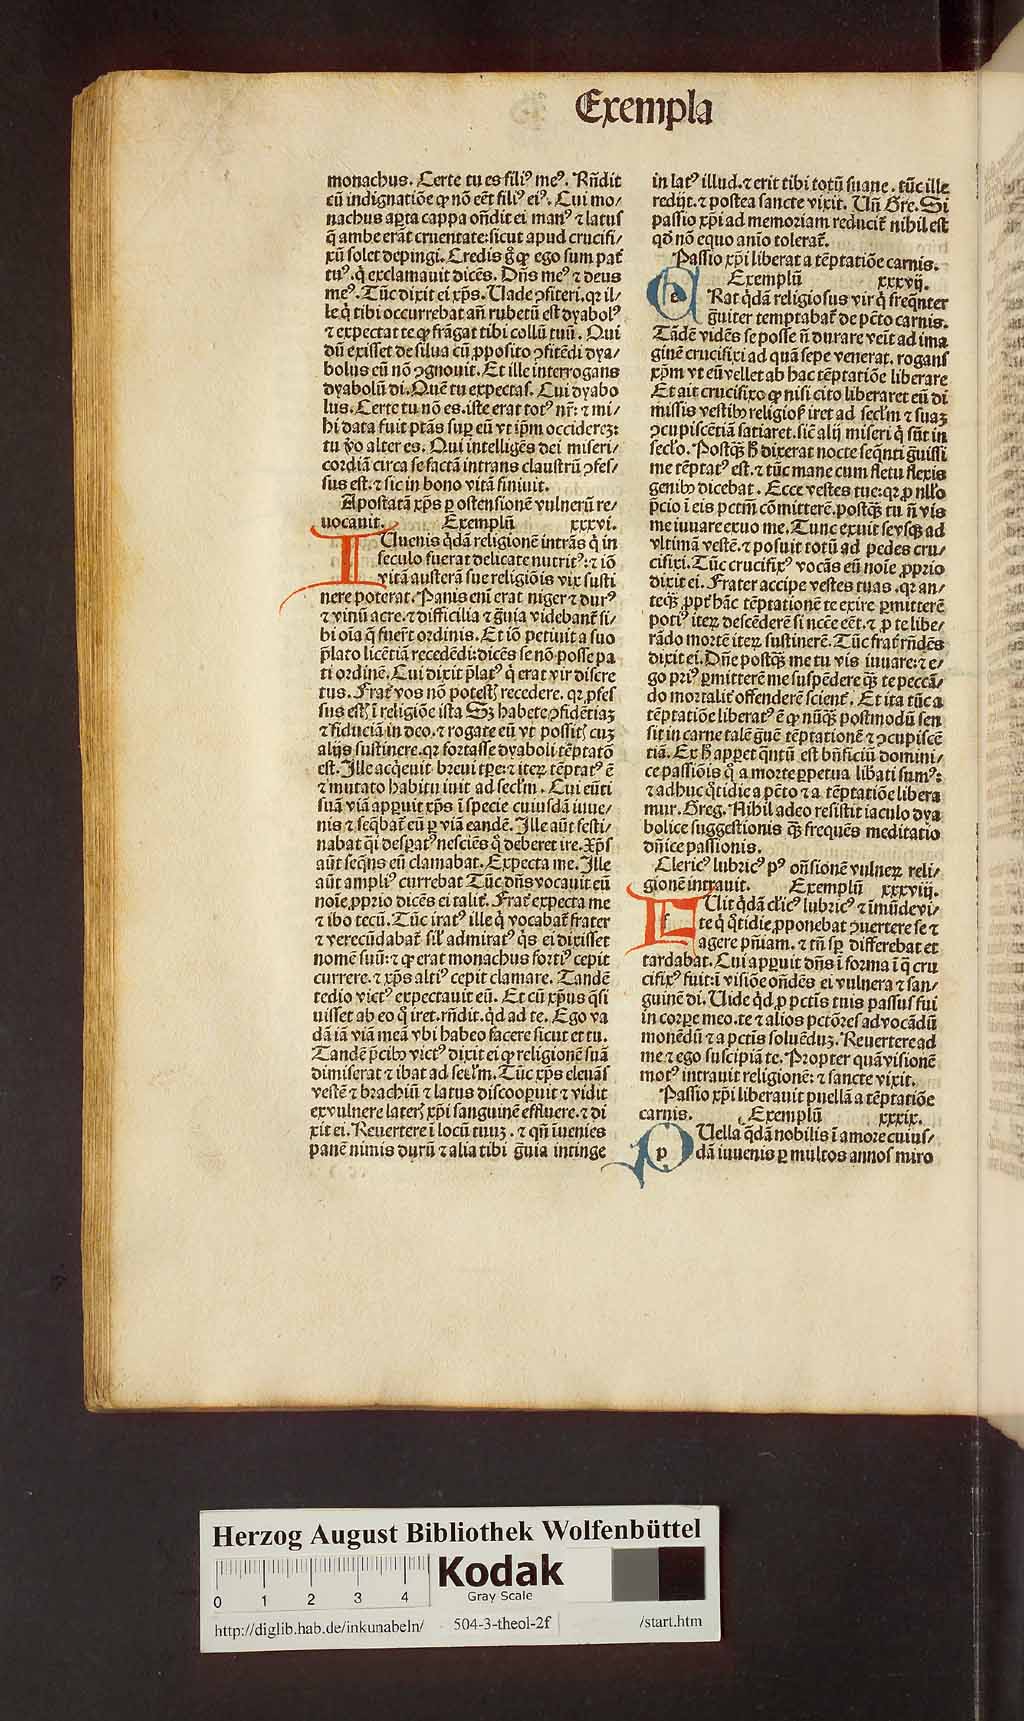 Exempla
monachus. Certe tu es filiꝰ meꝰ. Rñdit
cū indignatiōe ꝙ nō eēt filiꝰ eiꝰ. Cui mo/
nachus aꝑta cappa oñdit ei manꝰ ⁊ latus
q̄ ambe erāt cruentate: sicut apud crucifi/
xū solet depingi. Credis gͦ ꝙ ego sum pat̄
tuꝰ. q̇ exclamauit dicēs. Dn̄s meꝰ ⁊ deus
meꝰ. Tūc dixit ei xp̄s. Uade ꝯfiteri. qꝛ il/
le q̇ tibi occurrebat añ rubetū est dyabolꝰ
⁊ expectat te ꝙ frāgat tibi collū tuū. Qui
dū exisset de silua cū ꝓposito ꝯfitēdi dya/
bolus eū nō ꝯgnouit. Et ille interrogans
dyabolū di. Quē tu expectas. Cui dyabo
lus. Certe tu nō es. iste erat totꝰ nr̄: ⁊ mi/
hi data fuit ptās suꝑ eū vt ip̄m occiderēꝫ:
tu ṽo alter es. Qui intelligēs dei miseri/
cordiā circa se factā intrans claustrū ꝯfes/
sus est. ⁊ sic in bono vitā finiuit.
Apostatā xp̄s ꝑ ostensionē vulnerū re/
uocauit. Exemplū xxxvi.
IUuenis q̇dā religionē intrās q̇ in
seculo fuerat delicate nutritꝰ: ⁊ iō
vitā austerā sue religiōis vix susti
nere poterat. Panis em̄ erat niger ⁊ durꝰ
⁊ vinū acre. ⁊ difficilia ⁊ g̃uia videbant̃ si/
bi oīa q̄ fuer̄t ordinis. Et iō petiuit a suo
p̄lato licētiā recedēdi: dicēs se nō posse pa
ti ordinē. Cui dixit p̄latꝰ q̇ erat vir discre
tus. Frat̄ vos nō potestꝭ recedere. qꝛ ꝓfes
sus estꝭ ī religiōe ista Sꝫ habete ꝯfidētiaꝫ
⁊ fiduciā in deo. ⁊ rogate eū vt possitꝭ cuꝫ
alijs sustinere. qꝛ fortasse dyaboli tēptatō
est. Ille acq̇euit breui tꝑe: ⁊ iteꝝ tēptatꝰ ē
⁊ mutato habitu iuit ad secl'm. Cui eūti
suā viā apꝑuit xp̄s ī specie cuiusdā iuue/
nis ⁊ seq̄bat̄ eū ꝑ viā eandē. Ille aūt festi/
nabat q̇si desꝑatꝰ nesciēs q̇ deberet ire. Xp̄s
aūt seq̄ns eū clamabat. Expecta me. Ille
aūt ampliꝰ currebat Tūc dn̄s vocauit eū
noīe ꝓprio dicēs ei talit̄. Frat̄ expecta me
⁊ ibo tecū. Tūc iratꝰ ille q̇ vocabat̄ frater
⁊ verecūdabat̄ sil' admiratꝰ q̇s ei dixisset
nomē suū: ⁊ ꝙ erat monachus fortiꝰ cepit
currere. ⁊ xp̄s altiꝰ cepit clamare. Tandē
tedio victꝰ expectauit eū. Et cū xp̄us q̄si
uisset ab eo q̊ iret. rñdit. qd ad te. Ego va
dā iā viā meā vbi habeo facere sicut et tu.
Tandē p̄cibꝰ victꝰ dixit ei ꝙ religionē suā
dimiserat ⁊ ibat ad secl'm. Tūc xp̄s eleuās
vestē ⁊ brachiū ⁊ latus discooꝑuit ⁊ vidit
ex vulnere laterꝭ xp̄i sanguinē effluere. ⁊ di
xit ei. Reuertere ī locū tuuꝫ. ⁊ qn̄ īuenies
panē nimis durū ⁊ alia tibi g̃uia intinge
in latꝰ illud. ⁊ erit tibi totū suaue. tūc ille
redijt. ⁊ postea sancte vixit. Un̄ Gre. Si
passio xp̄i ad memoriam reducit̄ nihil est
qd nō equo anīo tolerat̄.
Passio xp̄i liberat a tēptatiōe carnis.
Exemplū xxxvij.
ERat q̇dā religiosus vir q̇ freq̄nter
g̃uiter temptabat̄ de pctō carnis.
Tādē vidēs se posse n̄ durare veīt ad ima
ginē crucifixi ad quā sepe venerat. rogans
xp̄m vt eū vellet ab hac tēptatiōe liberare
Et ait crucifixo ꝙ nisi cito liberaret eū di
missis vestibꝰ religiosꝭ iret ad secl'm ⁊ suaꝫ
ꝯcupiscētiā satiaret. sic̄ alij miseri q̇ sūt in
secl'o. Postqꝫ h̄ dixerat nocte seq̄nti g̃uissi
me tēptatꝰ est. ⁊ tūc mane cum fletu flexis
genibꝰ dicebat. Ecce vestes tue: qꝛ ꝓ nll'o
p̄cio ī eis pctm̄ cōmitterē. postqꝫ tu n̄ vis
me iuuare exuo me. Tunc exuit se vsqꝫ ad
vltimā vestē. ⁊ posuit totū ad pedes cru/
cifixi. Tūc crucifixꝰ vocās eū noīe ꝓprio
dixit ei. Frater accipe vestes tuas. qꝛ an/
teqꝫ ꝓpt̄ hāc tēptationē te exire ꝑmitterē
potiꝰ iteꝝ descēderē si nc̄ce eēt. ⁊ ꝓ te libe/
rādo mortē iteꝝ sustinerē. Tūc frat̄ rñdēs
dixit ei. Dn̄e postqꝫ me tu vis iuuare: ⁊ e/
go priꝰ ꝑmitterē me suspēdere qꝫ te peccā/
do mortalit̄ offenderē scient̄. Et ita tūc a
tēptatiōe liberatꝰ ē ꝙ nūqꝫ postmodū sen
sit in carne talē g̃uē tēptationē ⁊ ꝯcupiscē
tiā. Ex h̄ appet q̄ntū est bn̄ficiū domini/
ce passiōis q̇ a morte ꝑpetua libati sumꝰ:
⁊ adhuc q̇tidie a pctō ⁊ a tēptatiōe libera
mur. Greg. Nihil adeo resistit iaculo dya
bolice suggestionis qꝫ frequēs meditatio
dn̄ice passionis.
Clericꝰ lubricꝰ pꝰ oñsionē vulneꝝ reli/
gionē intrauit. Exemplū xxxviij.
FUit q̇dā cl'icꝰ lubricꝰ ⁊ īmūde vi/
te q̇ q̊tidie ꝓponebat ꝯuertere se ⁊
agere pn̄iam. ⁊ tn̄ sꝑ differebat et
tardabat. Cui apꝑuit dn̄s ī forma ī q̄ cru
cifixꝰ fuit: ī visiōe oñdēs ei vulnera ⁊ san/
guinē di. Uide qd ꝓ pctīs tuis passus fui
in corꝑe meo. te ⁊ alios pctōres ad vocādū
monēdū ⁊ a pctis soluēduꝫ. Reuertere ad
me ⁊ ego suscipiā te. Propter quā visionē
motꝰ intrauit religionē: ⁊ sancte vixit.
Passio xp̄i liberauit puellā a tēptatiōe
carnis. Exemplū xxxix.
PUella q̇dā nobilis ī amore cuius/
dā iuuenis ꝑ multos annos miro
Herzog August Bibliothek Wolfenbüttel
0 1 2 3 4
Kodak
Gray Scale
http://diglib.hab.de/inkunabeln/ 504-3-theol-2f /start.htm